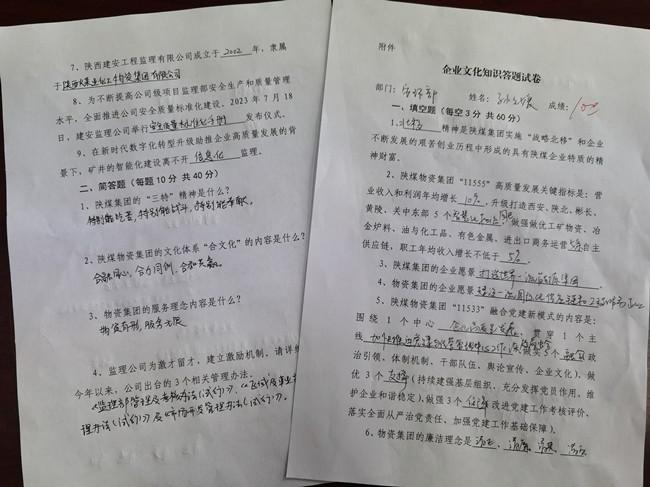 7、陕西建安工程监理有限公司成立于 2002 年，隶属
于陕西煤业化工物资集团有限公司
8、为不断提高公司级项目监理部安全生产和质量管理
水平，全面推进公司安全质量标准化建设，2023 年 7 月 18
日，建安监理公司举行安全质量标准化手册 发布仪式。
9、在新时代数字化转型升级助推企业高质量发展的背
景下，矿井的智能化建设离不开 信息化 监理。
二、简答题（每题 10 分 共 40 分）
1、陕煤集团的“三特”精神是什么？
特别能吃苦，特别能战斗，特别能奉献。
2、陕煤物资集团的文化体系“合文化”的内容是什么？
合力同创，合和共赢。
3、物资集团的服务理念内容是什么？
物资有形，服务无限
4、监理公司为激才留才，建立激励机制，请详细
今年以来，公司出台的 3 个相关管理办法。
《监理部管理及考核办法（试行）》、
理办法（试行）》及 管理办法（试行）》。
附件
企业文化知识答题试卷
部门：安环部 姓名： 成绩：100
一、填空题（每空 3 分 共 60 分）
1、北移 精神是陕煤集团实施“战略北移”和企业
不断发展的艰苦创业历程中形成的具有陕煤企业特质的精
神财富。
2、陕煤物资集团“11555”高质量发展关键指标是：营
业收入和利润年均增长 10%，升级打造西安、陕北、彬长、
黄陵、关中东部 5 个 做强做优化工矿物资、冶
金炉料、油与化工品、有色金属、进出口商务运营 5条 自主
供应链，职工年均收入增长不低于 5%。
3、陕煤集团的企业愿景 打造世界一流
4、物资集团的企业愿景 建设一流
5、陕煤物资集团“11533”融合党建新模式的内容是：
围绕 1 个中心 企业高质量发展，贯穿 1 个主
线 做实 5 个 融合
政治引领、体制机制、干部队伍、舆论宣传、企业文化）、做
优 3 个 支撑（持续建强基层组织、充分发挥党员作用、维
护企业和谐稳定）、做强 3 个 保障 改进党建工作考核评价、
落实全面从严治党责任、加强党建工作基础保障）。
6、物资集团的廉洁理念是